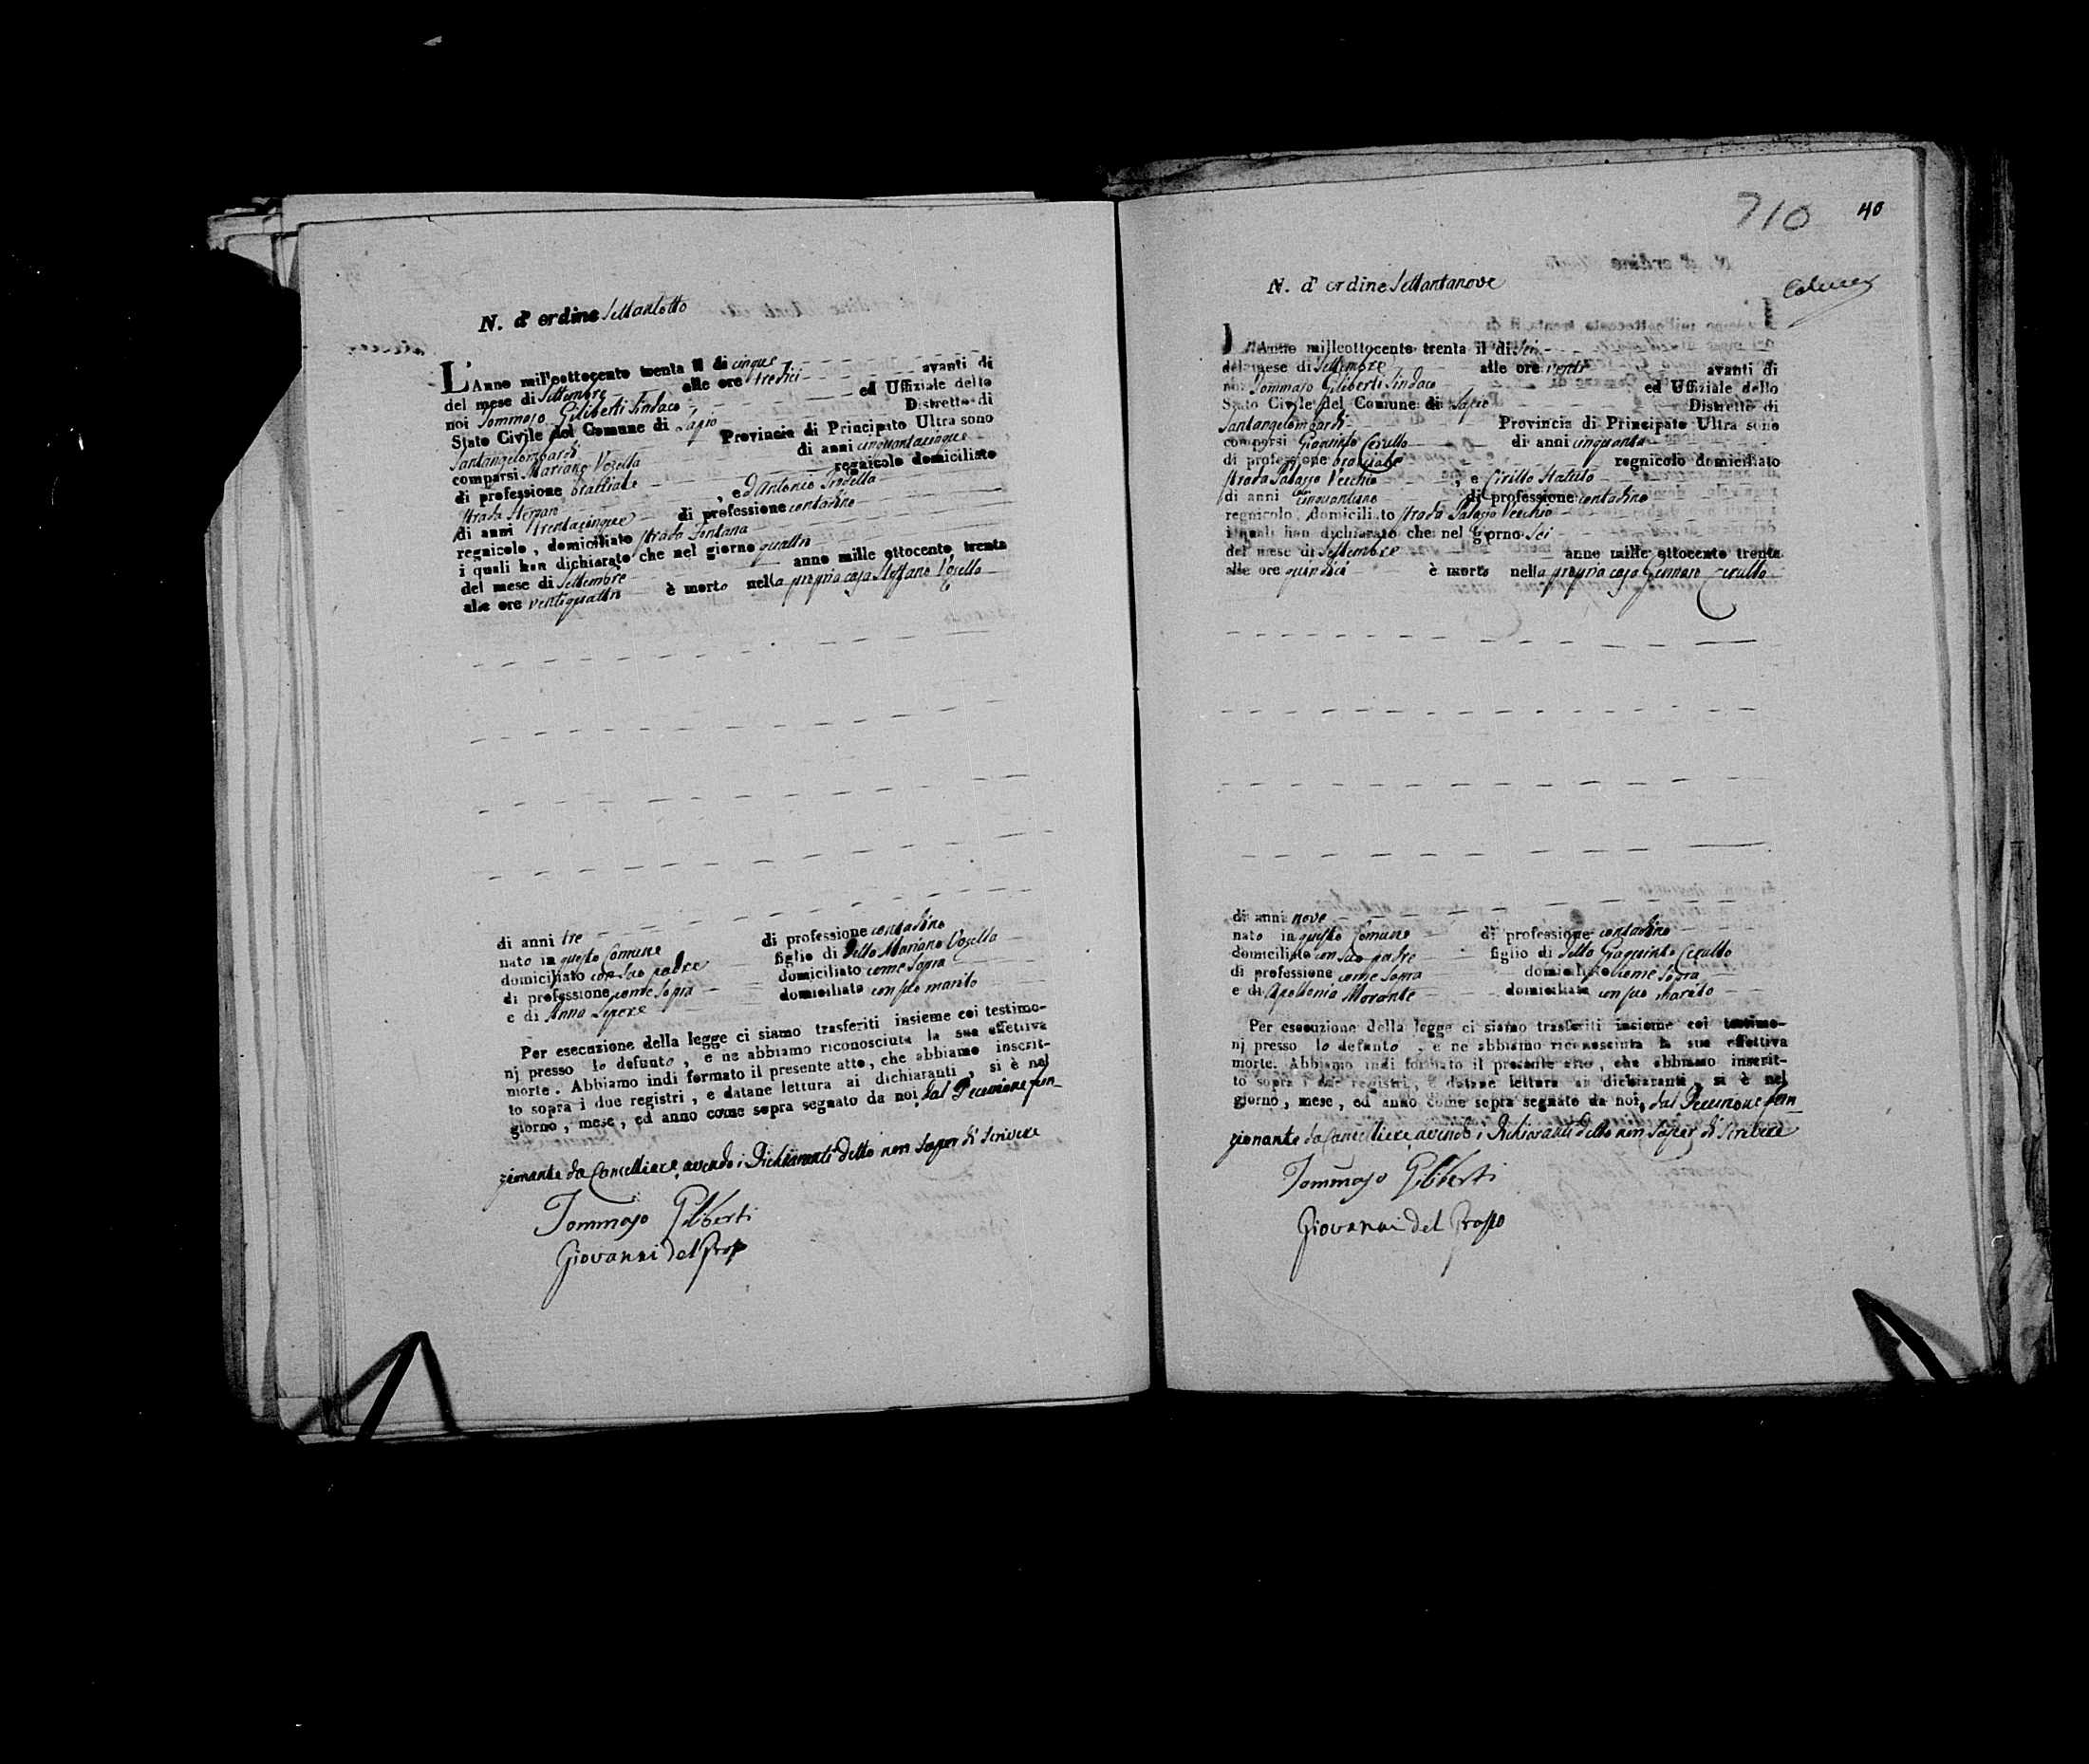 N. d' ordine Settantotto
L'Anno mill'eottocento trenta il di cinque
del mese di Settembre alle ore tredici avanti di
noi Tommaso Giliberti Sindaco ed Uffiziale dello
Stato Civile del Comune di Lapio Distretto di
Santangelombardi Provincia di Principato Ultra sono
comparsi Mariano Vozella di anni cinquantacinque
di professione bracciale regnicolo domiciliato
strada , ed Antonio
di anni trentacinque di professione contadino
regnicolo , domiciliato strada Fontana
i quali han dichiarato che nel giorno quattro
del mese di Settembre anno mille ottocento trenta
alle ore ventiquattro è morto nella propria casa Steffano Vozella
di anni tre
nato in questo Comune di professione contadino
domiciliato con suo padre figlio di detto Mariano Vozella
di professione come sopra domiciliato come sopra
e di Anna domiciliata con suo marito
Per esecuzione della legge ci siamo trasferiti insieme coi testimo-
nj presso lo defunto , e ne abbiamo riconosciuta la sua effettiva
morte . Abbiamo indi formato il presente atto , che abbiamo inscrit-
to sopra i due registri , e datane lettura ai dichiaranti , si è nel
giorno , mese , ed anno come sopra segnato da noi, dal Decurione fun-
zionante da Cancelliere, avendo i Dichiaranti detto non saper di scrivere
Tommaso Giliberti
Giovanni del Grosso
710 40
N. d' ordine Settantanove
L'Anno milleottocento trenta il di sei
del mese di Settembre alle ore venti avanti di
noi Tommaso Giliberti Sindaco ed Uffiziale dello
Stato Civile del Comune di Lapio Distretto di
Santangelombardi Provincia di Principato Ultra sono
comparsi Giacinto Cerullo di anni cinquanta
di professione bracciale regnicolo domiciliato
strada Palazzo Vecchio , e Cirillo Statuto
di anni cinquantuno di professione contadino
regnicolo , domiciliato strada Palazzo Vecchio
i quali han dichiarato che nel giorno sei
del mese di Settembre anno mille ottocento trenta
alle ore quindici è morto nella propria casa Gennaro Cerullo
di anni nove
nato in questo Comune di professione contadino
domiciliato con suo padre figlio di detto Cerullo
di professione come sopra domiciliato come sopra
e di Apollonia Morante domiciliata con suo marito
Per esecuzione della legge ci siamo trasferiti insieme coi testimo-
nj presso lo defunto , e ne abbiamo riconosciuta la sua effettiva
morte. Abbiamo indi formato il presente atto , che abbiamo inscrit-
to sopra i due registri , e datane lettura ai dichiaranti , si è nel
giorno , mese , ed anno come sopra segnato da noi, dal Decurione fun-
zionante da Cancelliere avendo i Dichiaranti detto non saper di scrivere
Tommaso Giliberti
Giovanni del Grosso